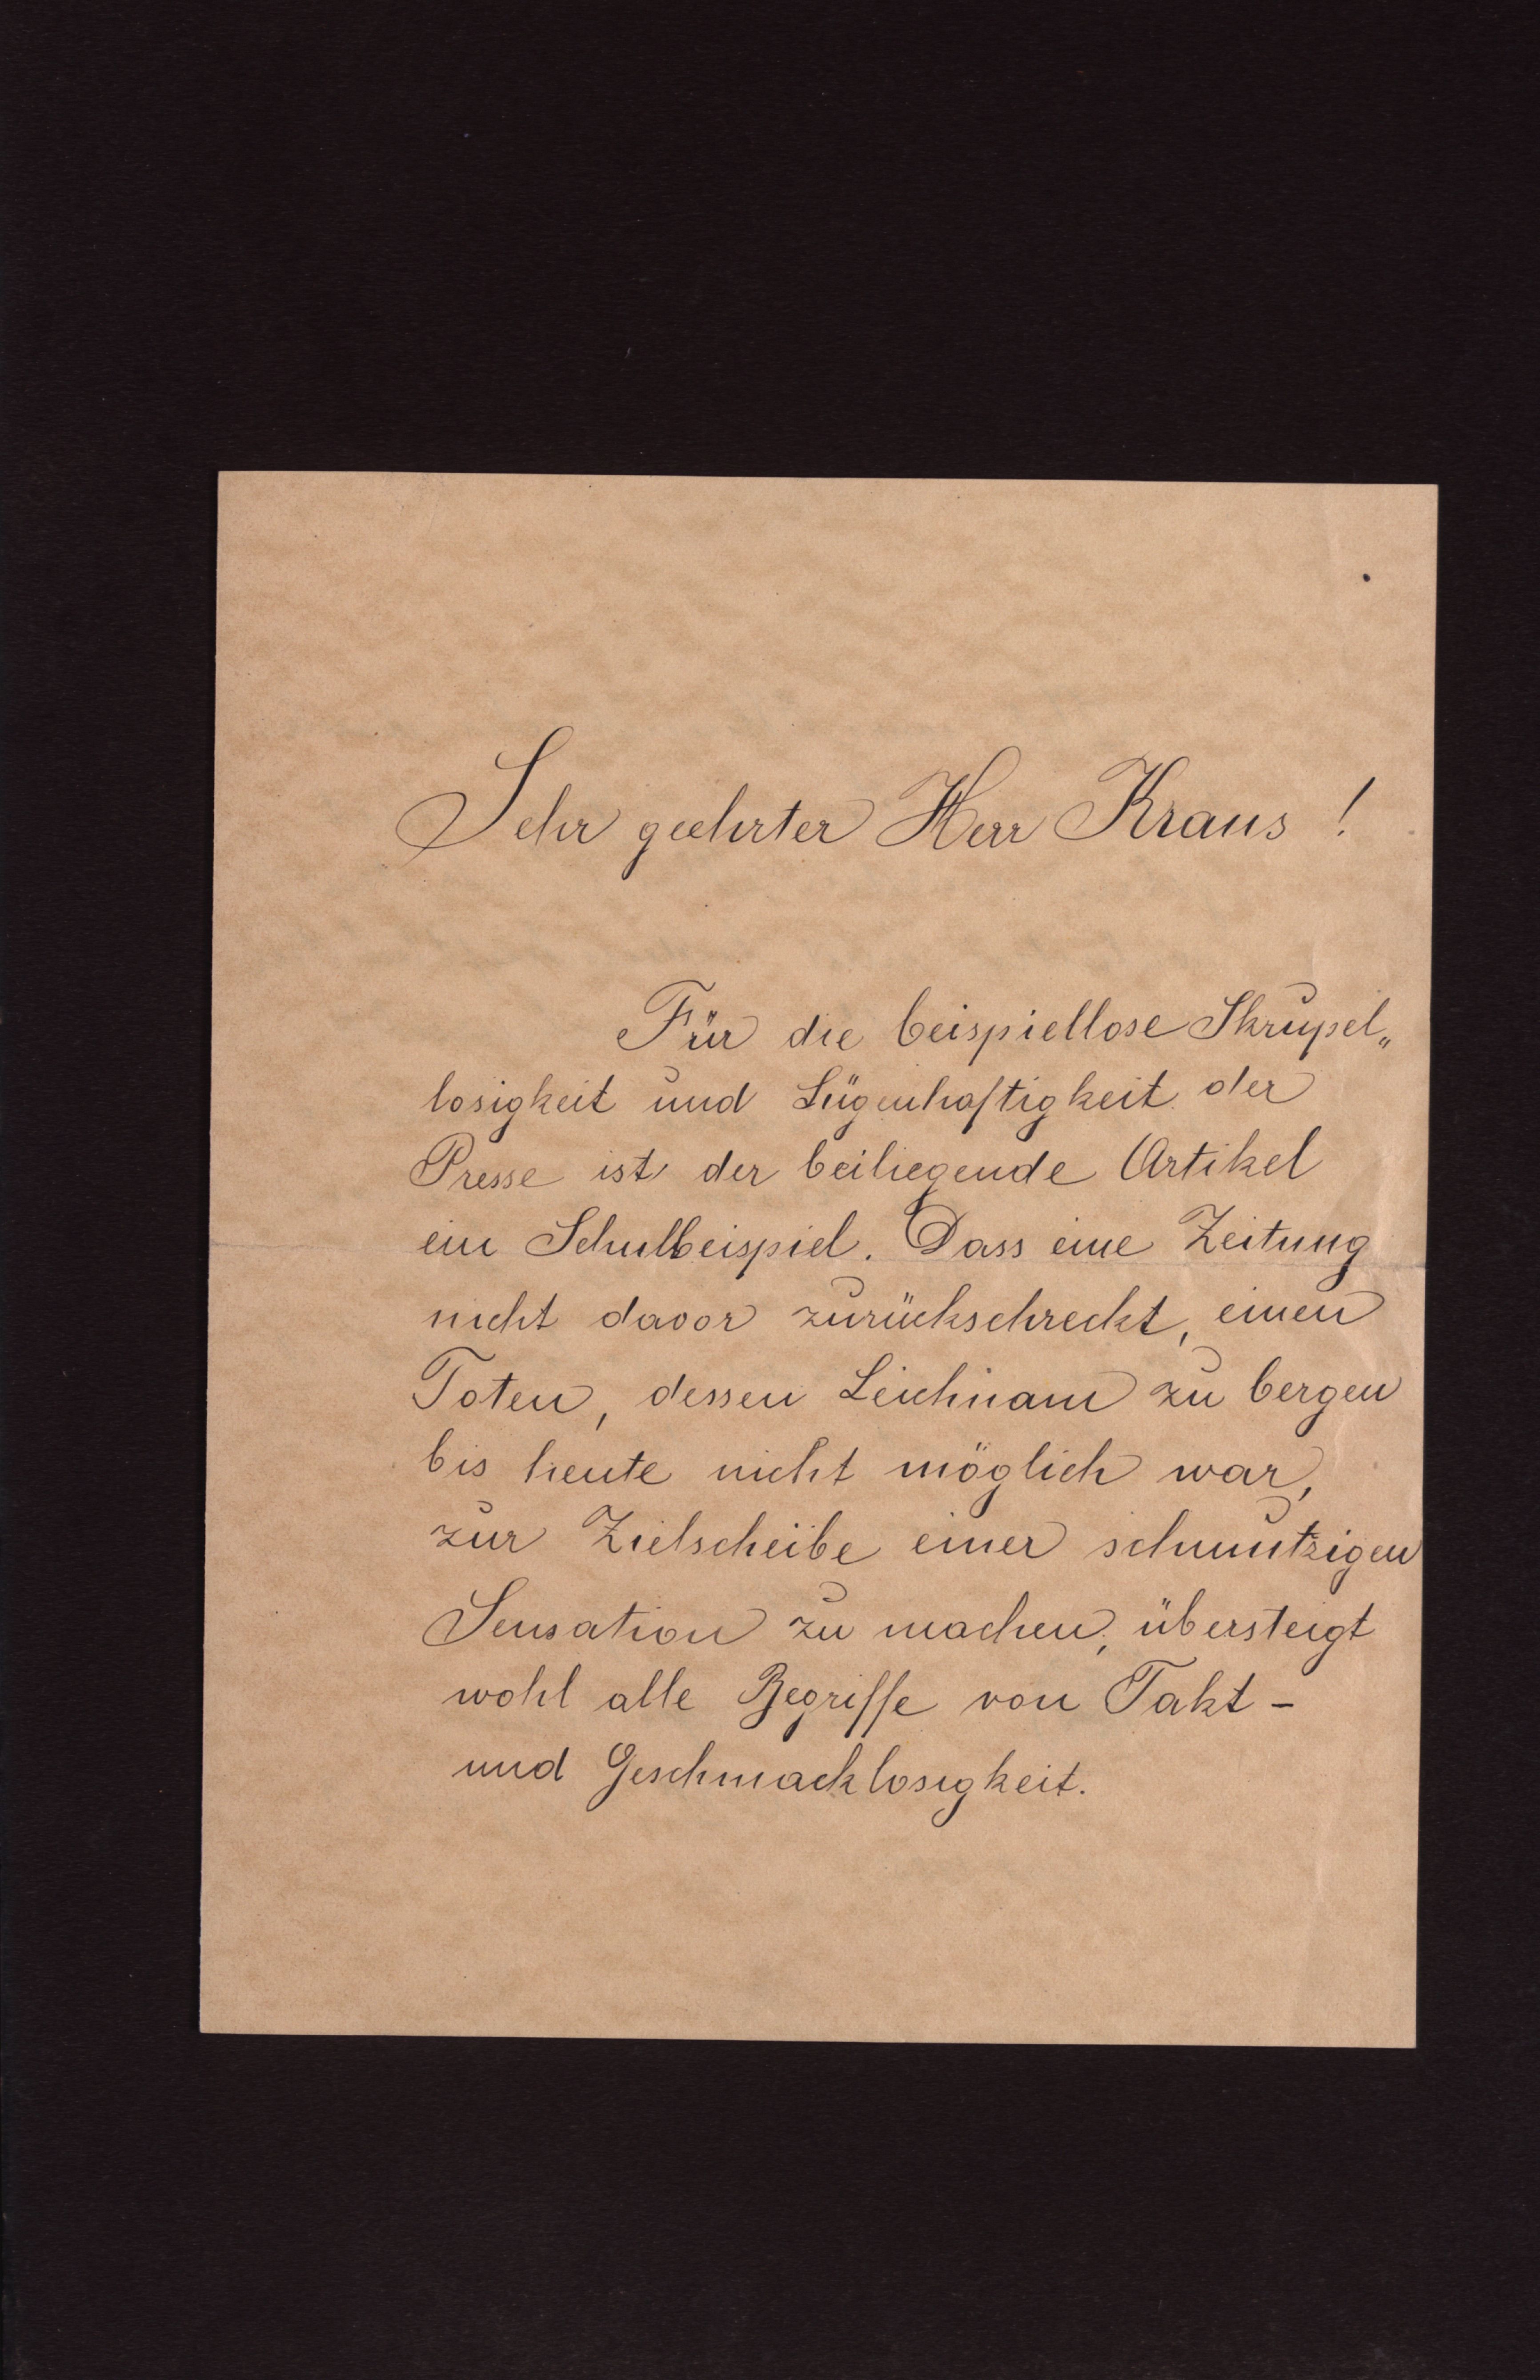 Sehr geehrter Herr Kraus !
Für die beispiellose Skrupel„
losigkeit und Lügenhaftigkeit der
Presse ist der beiliegende Artikel
ein Schulbeispiel. Dass eine Zeitung
nicht davor zurückschreckt, einen
Toten, dessen Leichnam zu bergen
bis heute nicht möglich war,
zur Zielscheibe einer schmutzigen
Sensation zu machen, übersteigt
wohl alle Begriffe von Takt -
und Geschmacklosigkeit.